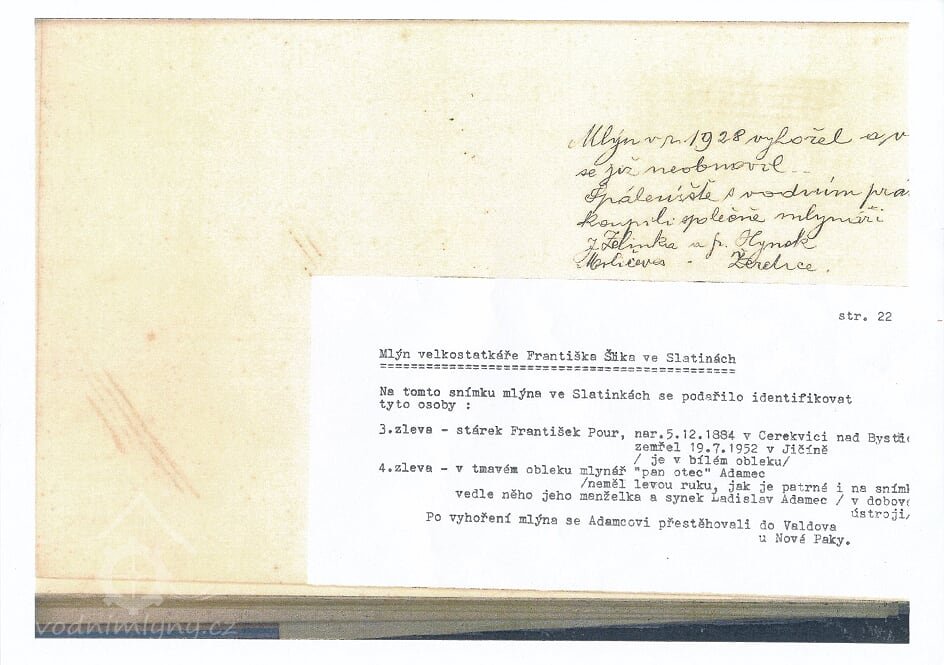 Mlýn v r. 1928 vyhořel a v
se již neobnovil..
Spáleniště s vodním prá
koupili společně mlynáři
J Zelinka a fr. Hynek
- Žeretice.
str. 22
Mlýn velkostatkáře Františka Šlika ve Slatinách
===============================================
Na tomto snímku mlýna ve Slatinkách se podařilo identifikovat
tyto osoby :
3.zleva - stárek František Pour, nar.5.12.1884 v Cerekvici nad Bystřic
zemřel 19.7.1952 v Jičíně
/ je v bílém obleku/
4.zleva - v tmavém obleku mlynář "pan otec" Adamec
/neměl levou ruku, jak je patrné i na sním
vedle něho jeho manželka a synek Ladislav Adamec / v dobové
ústroji/
Po vyhoření mlýna se Adamcovi přestěhovali do Valdova
u Nové Paky.
vodnimlyny.cz